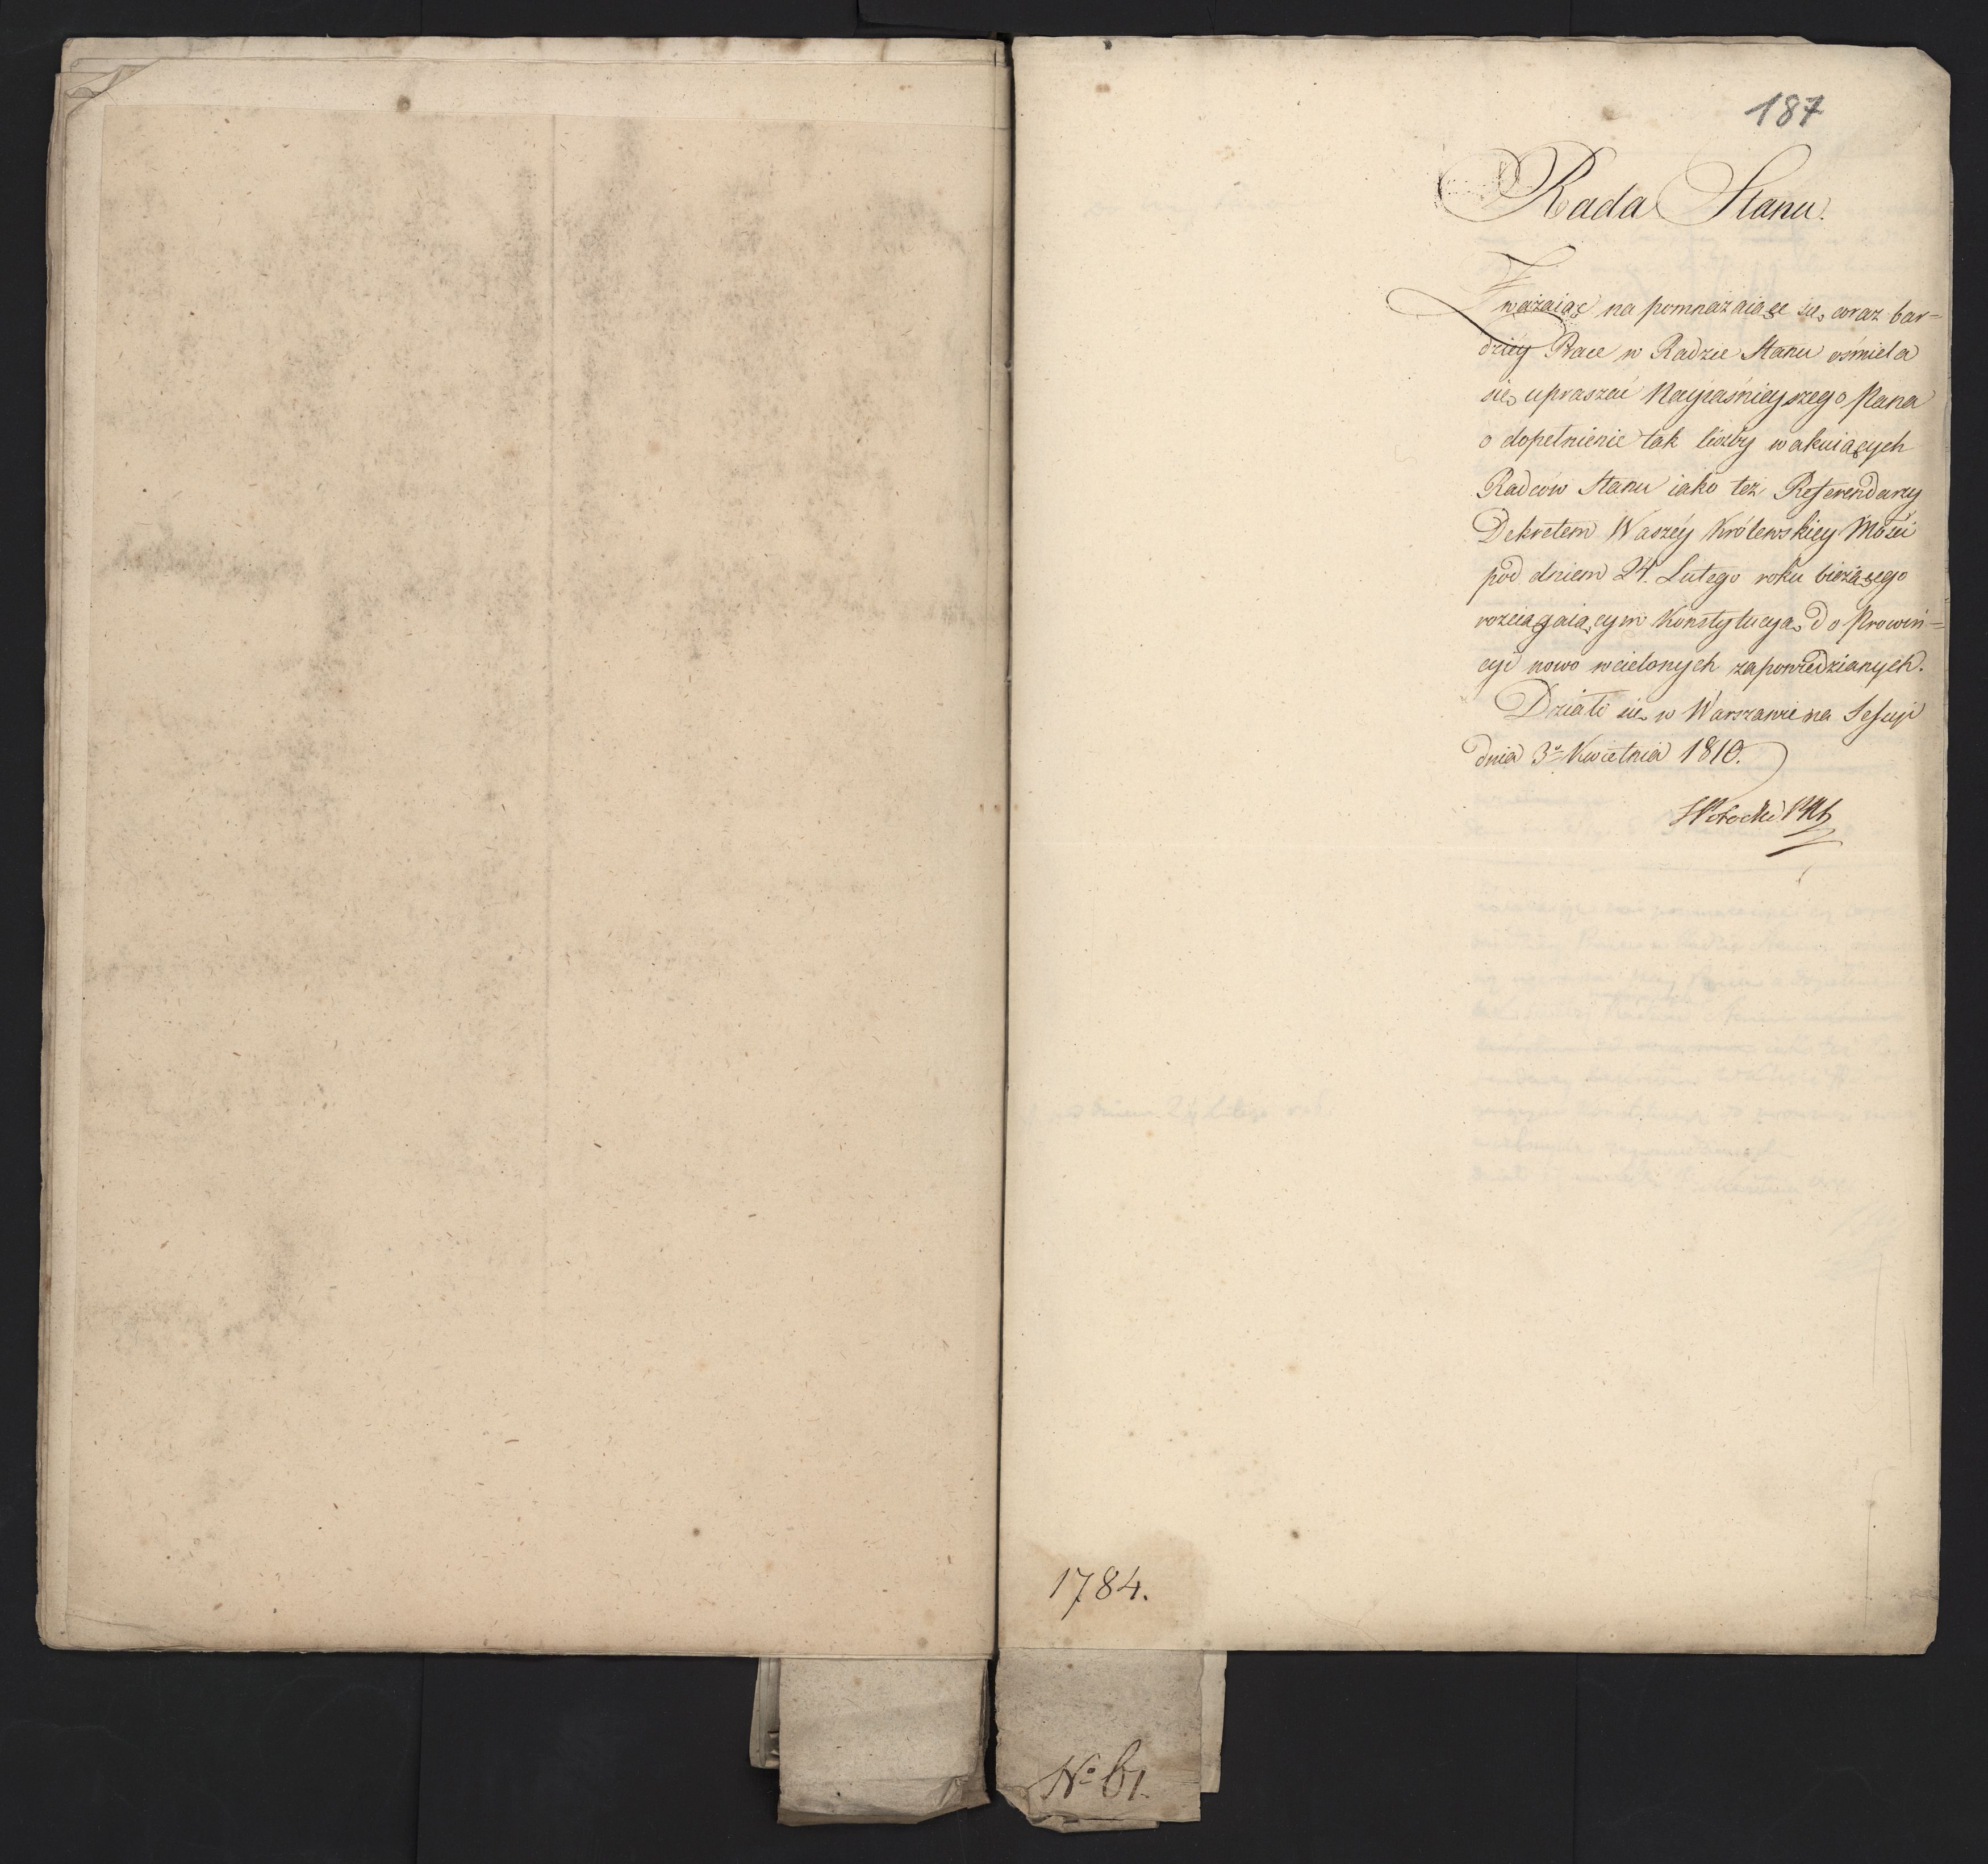 187
Rada Stanu.
Zważaiąc na pomnażaiące się coraz bar=
dziey Prace w Radzie Stanu ośmiela
się upraszać Nayiaśnieyszego Pana
o dopełnienie tak liczby wakuiących
Radców Stanu iako też Referendarzy
Dekretem Waszéy Królewskiey Mości
pod dniem 24. Lutego roku bieżącego
rozciągaiącym Konstytucyą do Prowin=
cyi nowo wcielonych zapowiedzianych.
Działo się w Warszawie na Sessyi
dnia 3º Kwietnia 1810.
Potocki
1784.
Nº 61.